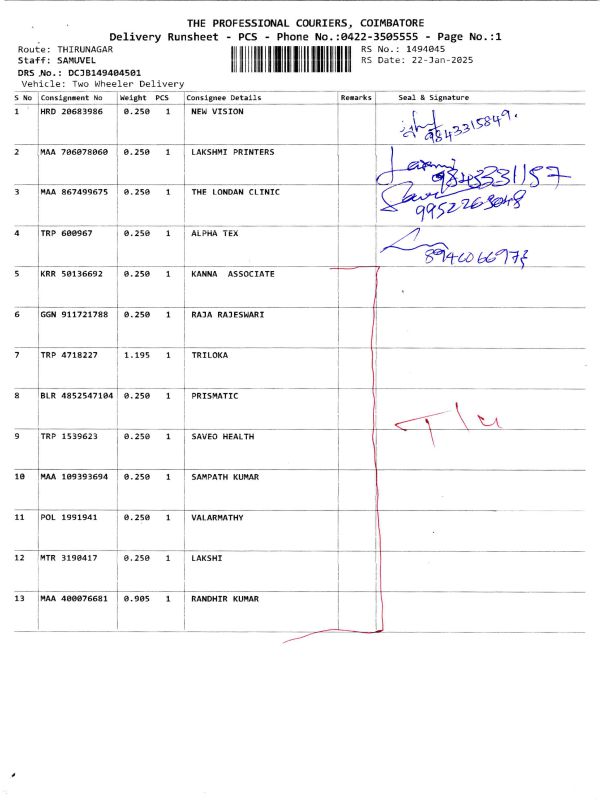 THE PROFESSIONAL COURIERS, COIMBATORE
Delivery Runsheet - PCS - Phone No.:0422-3505555 - Page No.:1
Route: THIRUNAGAR RS No.: 1494045
Staff: SAMUVEL RS Date: 22-Jan-2025
DRS No.: DCJB149404501
Vehicle: Two Wheeler Delivery
S No Consignment No Weight PCS Consignee Details Remarks Seal & Signature
1 HRD 20683986 0.250 1 NEW VISION
9843315849.
2 MAA 706078060 0.250 1 LAKSHMI PRINTERS
9843331157
3 MAA 867499675 0.250 1 THE LONDAN CLINIC
4 TRP 600967 0.250 1 ALPHA TEX
5 KRR 50136692 0.250 1 KANNA ASSOCIATE
6 GGN 911721788 0.250 1 RAJA RAJESWARI
7 TRP 4718227 1.195 1 TRILOKA
8 BLR 4852547104 0.250 1 PRISMATIC
9 TRP 1539623 0.250 1 SAVEO HEALTH
10 MAA 109393694 0.250 1 SAMPATH KUMAR
11 POL 1991941 0.250 1 VALARMATHY
12 MTR 3190417 0.250 1 LAKSHI
13 MAA 400076681 0.905 1 RANDHIR KUMAR